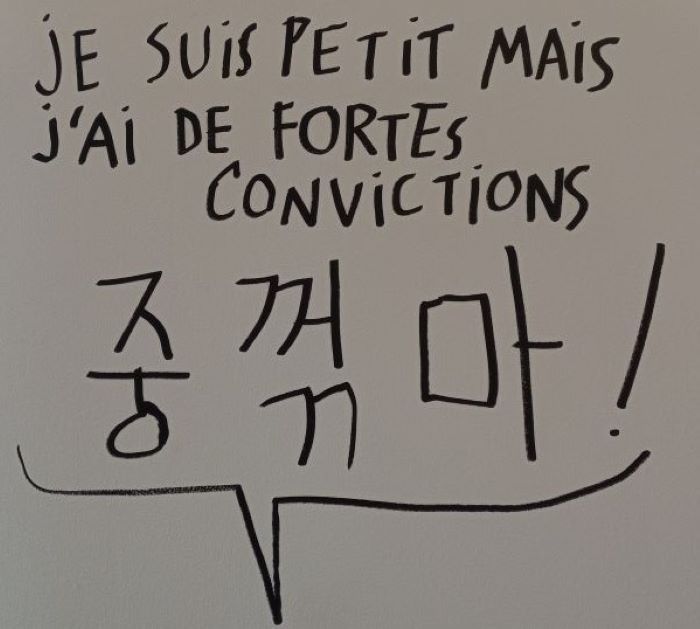 JE SUIS PETIT MAIS
J'AI DE FORTES
CONVICTIONS
중꺾마!